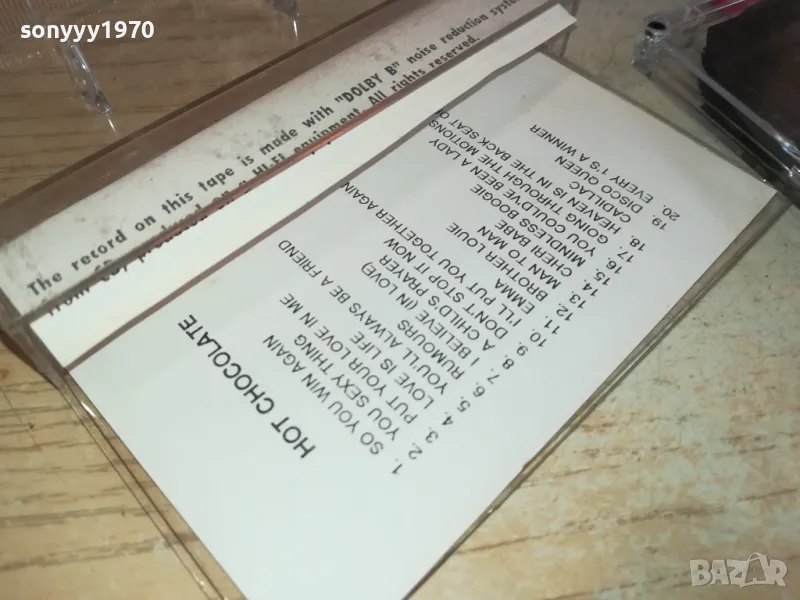 sonyyy1970
The record on this tape is made with "DOLBY B" noise reduction system
from CD, produced on HI-FI equipment. All rights reserved.
HOT CHOCOLATE
1. SO YOU WIN AGAIN
2. YOU SEXY THING
3. PUT YOUR LOVE IN ME
4. LOVE IS LIFE
5. YOU'LL ALWAYS BE A FRIEND
6. RUMOURS
7. I BELIEVE (IN LOVE)
8. A CHILD'S PRAYER
9. DON'T STOP IT NOW
10. I'LL PUT YOU TOGETHER AGAIN
11. EMMA
12. BROTHER LOUIE
13. MAN TO MAN
14. CHERI BABE
15. MINDLESS BOOGIE
16. YOU COULD'VE BEEN A LADY
17. GOING THROUGH THE MOTIONS
18. HEAVEN IS IN THE BACK SEAT O
CADILLAC
19. DISCO QUEEN
20. EVERY 1'S A WINNER
BAZAR